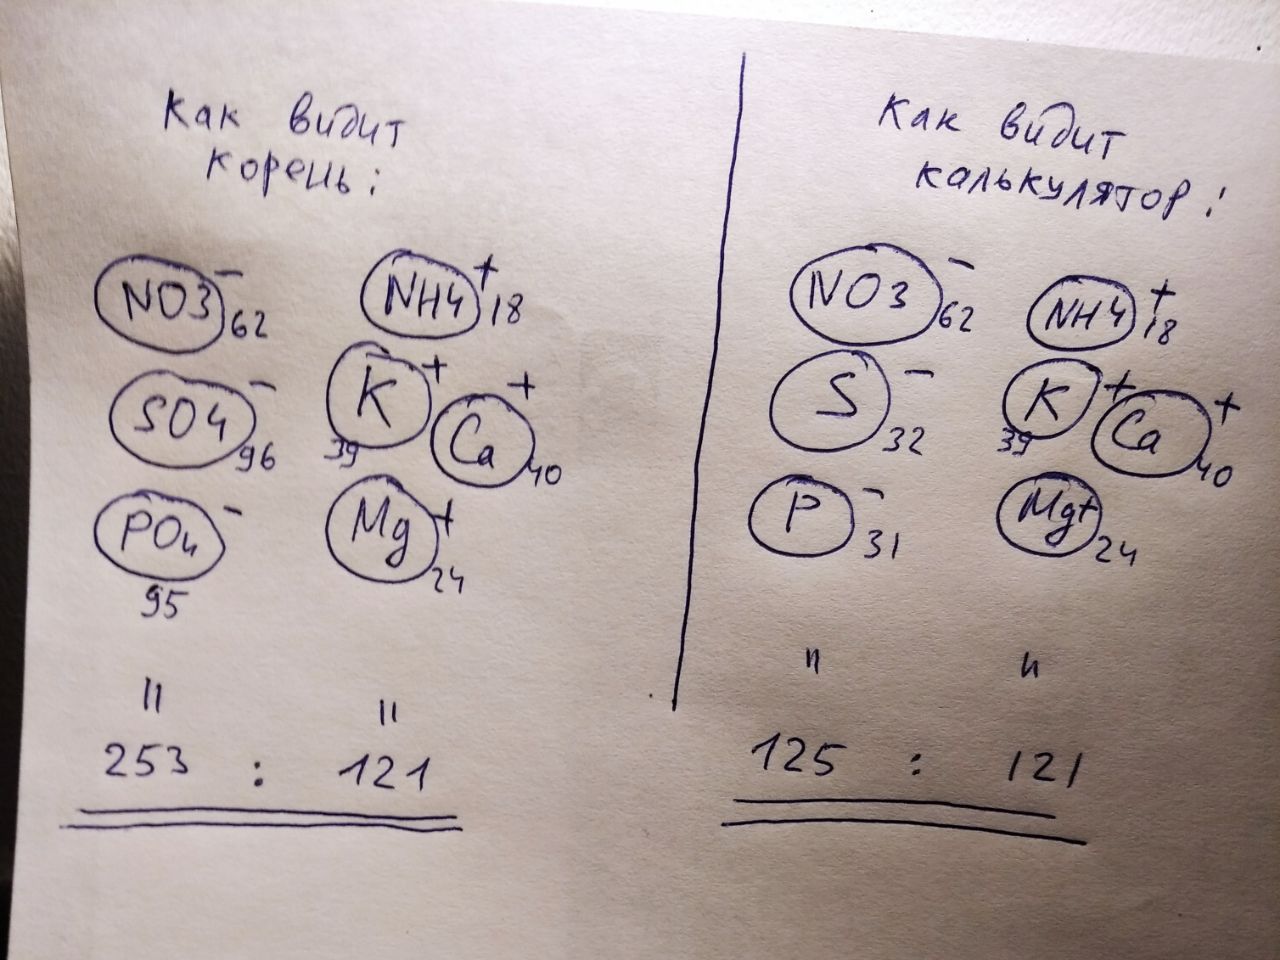 Как видит
корень:
NO3⁻ 62 NH4⁺ 18
SO4⁻ 96 K⁺ 39 Ca⁺ 40
PO4⁻ 95 Mg⁺ 24
= =
253 : 121
Как видит
калькулятор:
NO3⁻ 62 NH4⁺ 18
S⁻ 32 K⁺ 39 Ca⁺ 40
P⁻ 31 Mg⁺ 24
= =
125 : 121